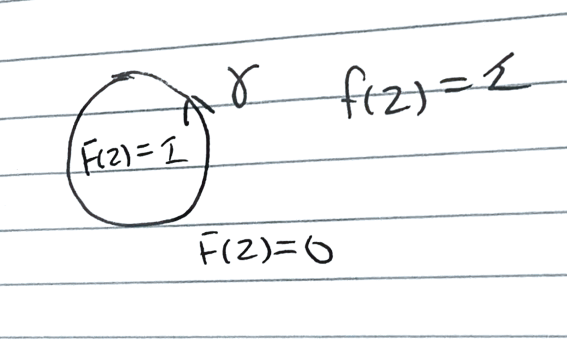 γ f(z) = 1
F(z) = 1
F(z) = 0